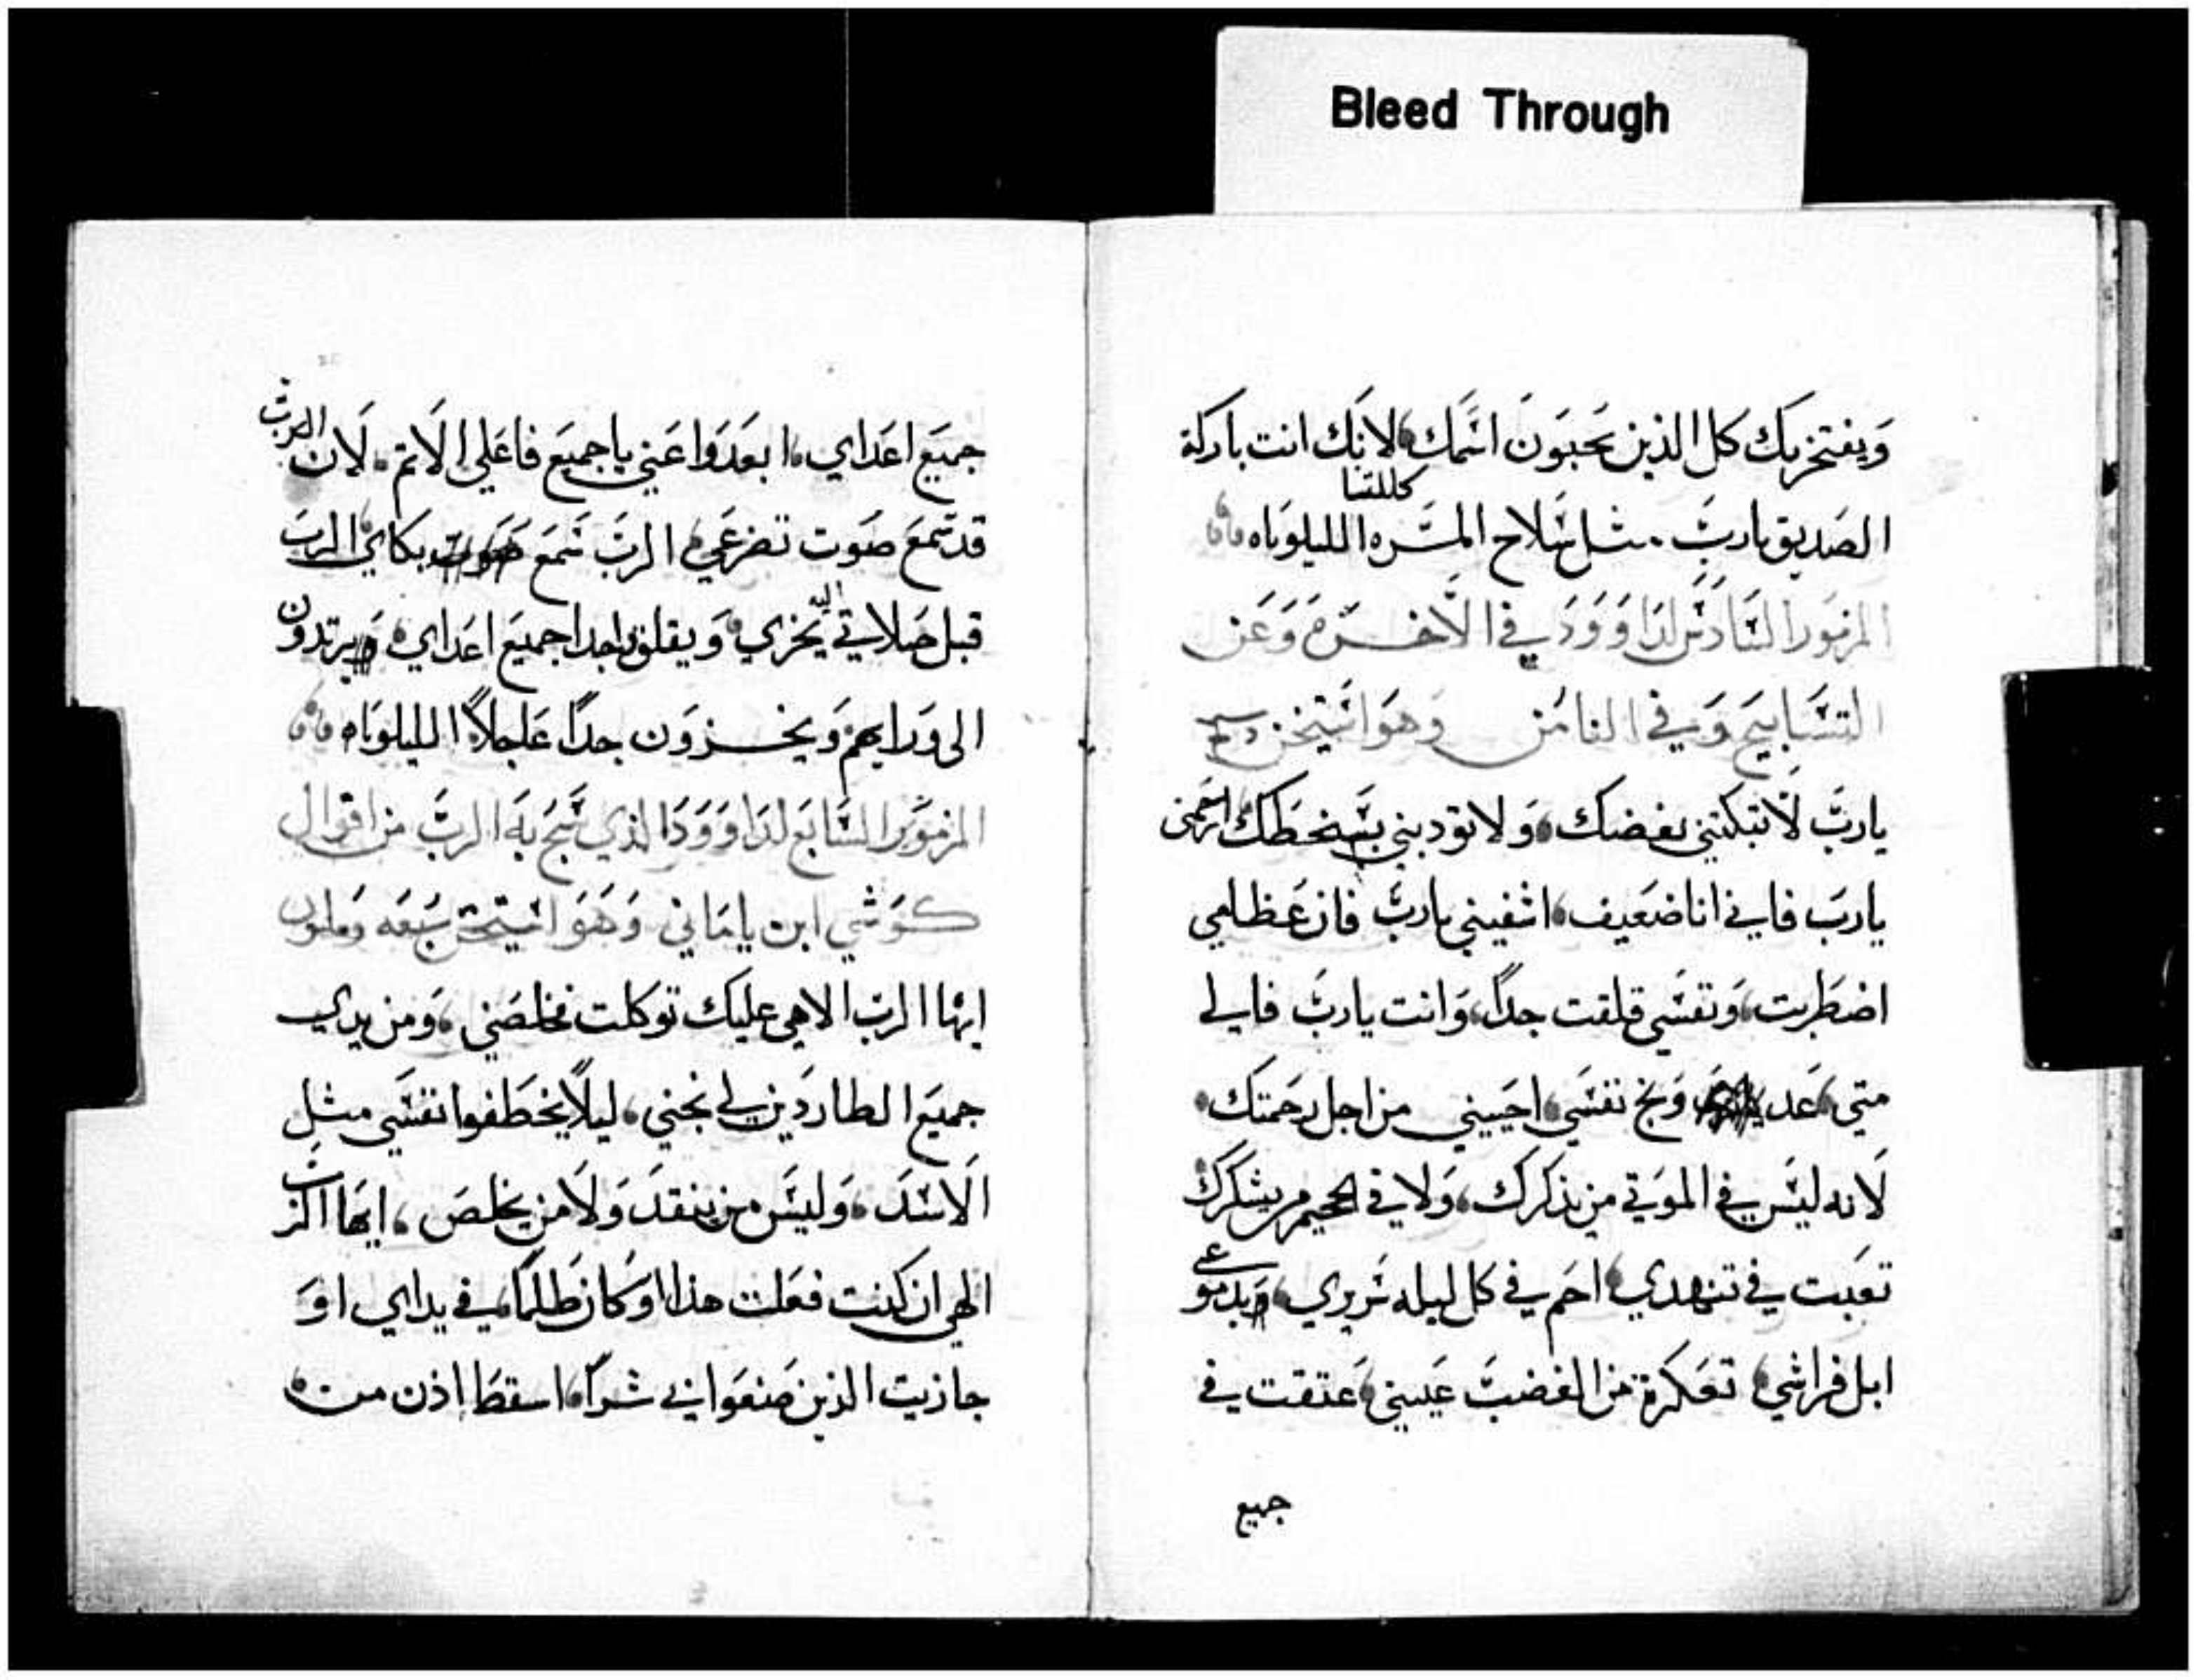 Bleed Through
ويفتخر بك كل الذين يحبون اسمك لانك انت باركة
كللتنا
الصديق يارب. مثل سلاح المسره الليلوياه
المزمور السادس لداوود في الاخره وعن
التسابيح وفي الثامن وهو استيخن
يارب لا تبكتني بغضبك ولا تودبني بسخطك ارحمني
يارب فاني انا ضعيف اشفيني يارب فان عظامي
اضطربت ونفسي قلقت جداً وانت يارب فالي
متي عد ونج نفسي احييني من اجل رحمتك
لانه ليس في الموتي من يذكرك ولا في الجحيم من يشكرك
تعبت في تنهدي احم في كل ليله سريري وبدموعي
ابل فراشي تعكرة من الغضب عيني عتقت في
جميع
جميع اعداي ابعدوا عني يا جميع فاعلي الاتم. لان الرب
قد سمع صوت تضرعي الرب سمع صوت بكاي الرب
قبل صلاتي اليه يخزي ويقلق جدا جميع اعداي ويرتدون
الى ورايهم ويخزون جداً عاجلاً الليلوياه
المزمور السابع لداوود الذي سبح به الرب من اقوال
كوشي ابن ياماني وهو استيخن سبعه
ايها الرب الاهي عليك توكلت فخلصني ومن يدي
جميع الطاردين لي نجني ليلاً يخطفوا نفسي مثل
الاسد وليس من ينقد ولا من يخلص ايها الرب
الهي ان كنت فعلت هذا او كان ظلماً في يداي او
جازيت الذين صنعوا بي شراً اسقط اذن من